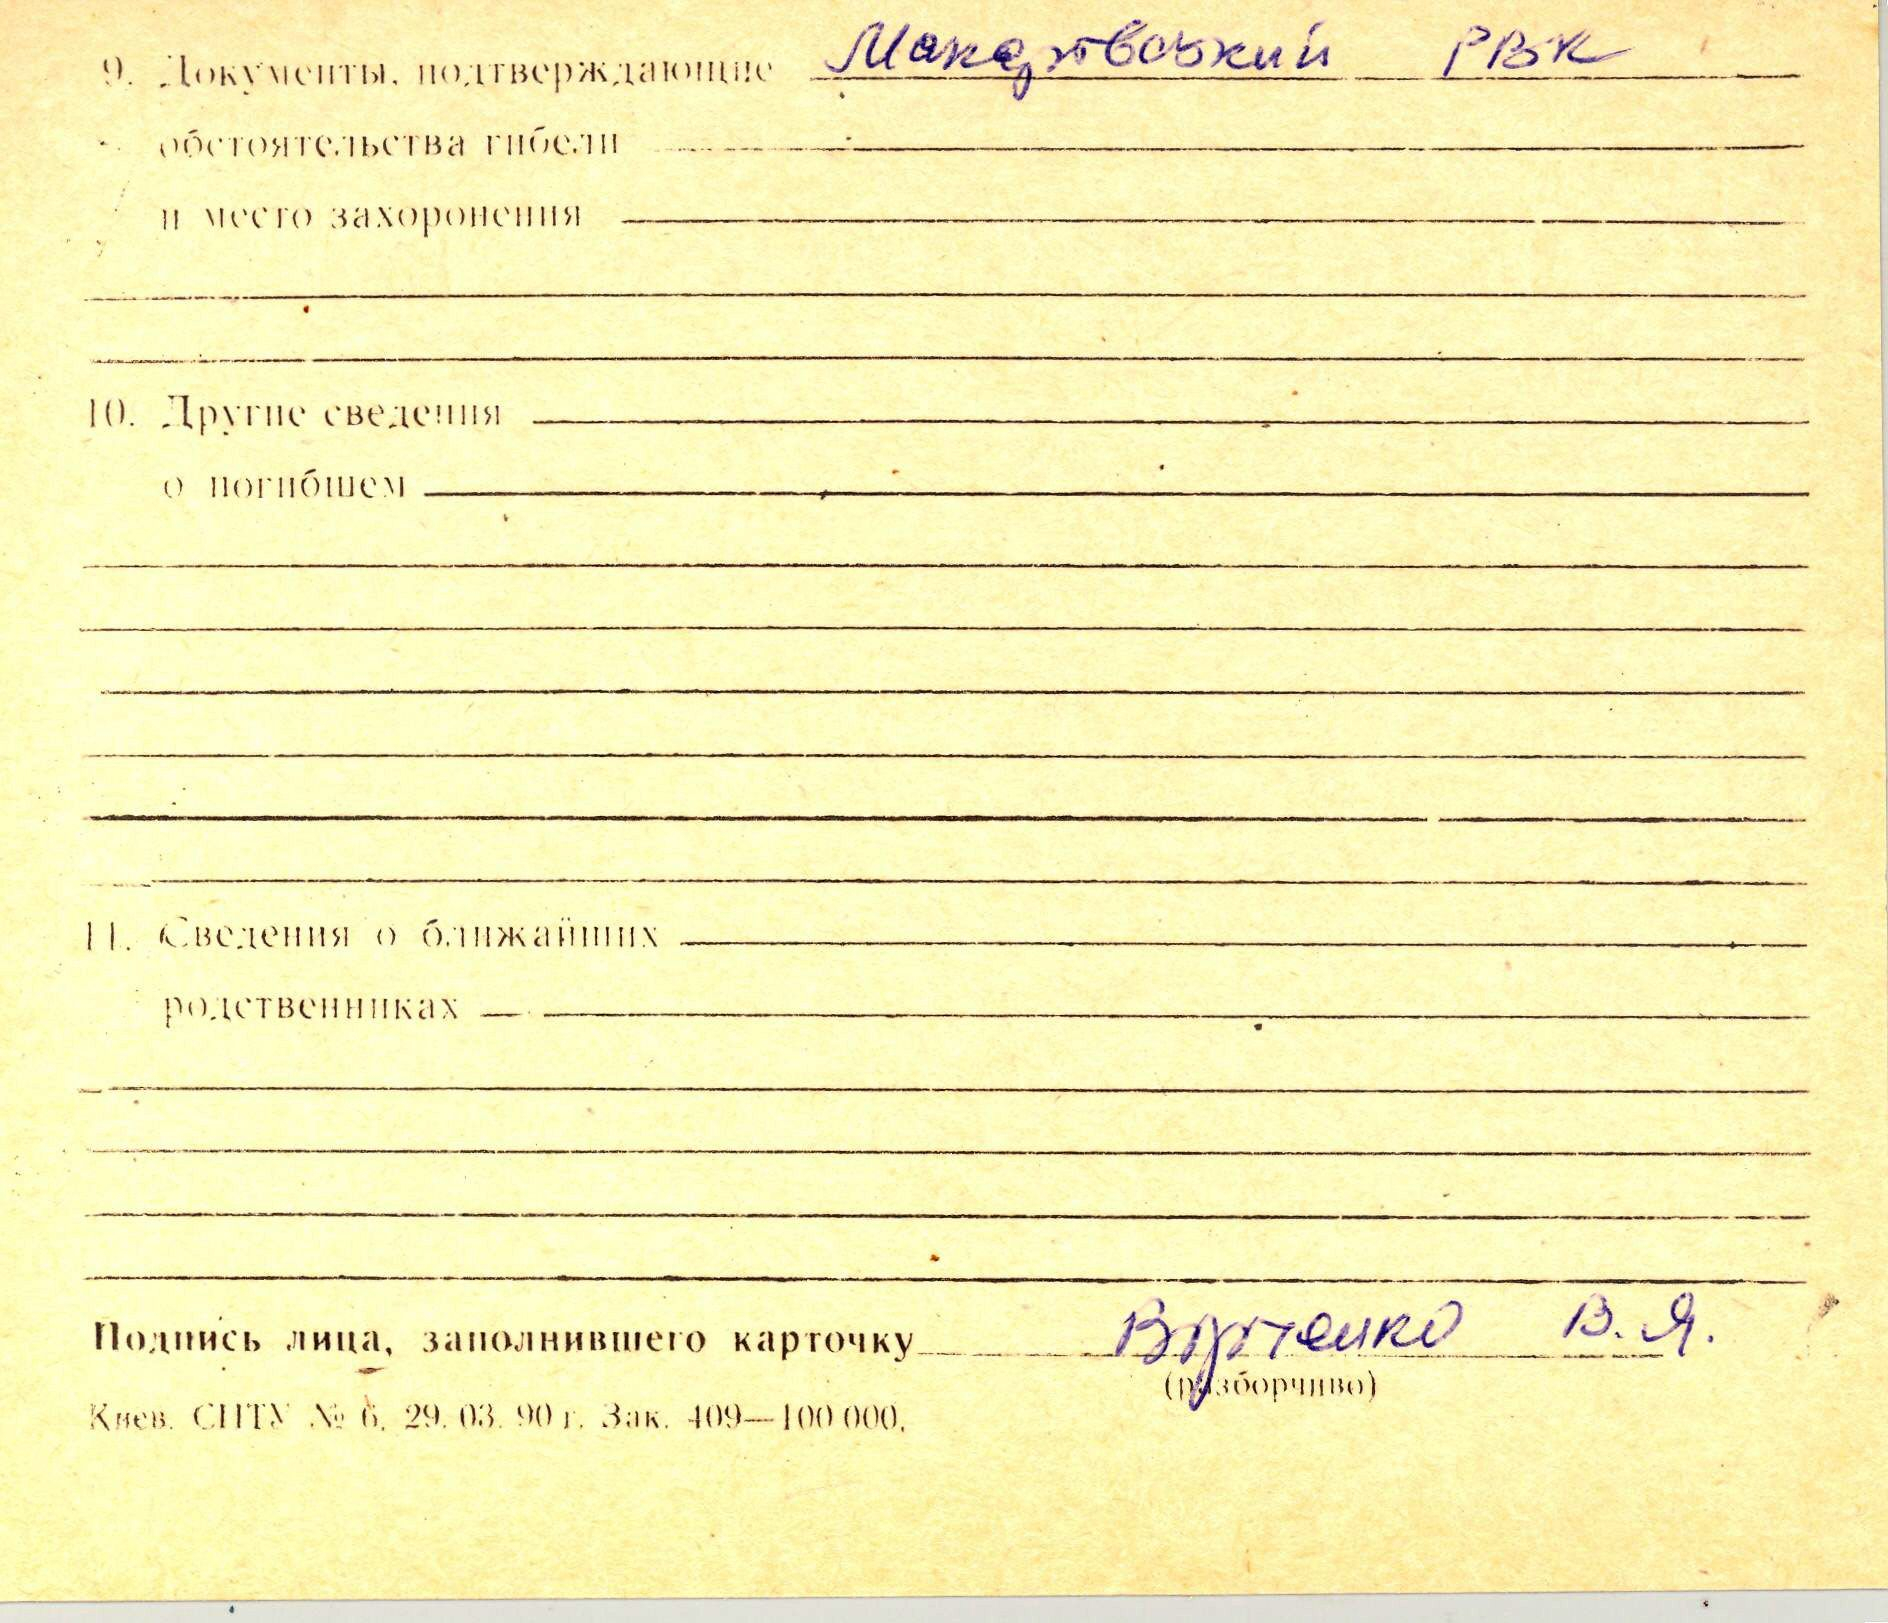 9. Документы, подтверждающие Макарівський РВК
обстоятельства гибели
и место захоронения
10. Другие сведения
о погибшем
11. Сведения о ближайших
родственниках
Подпись лица, заполнившего карточку В. Я.
(разборчиво)
Киев. СПТУ № 6. 29. 03. 90 г. Зак. 409—100 000.